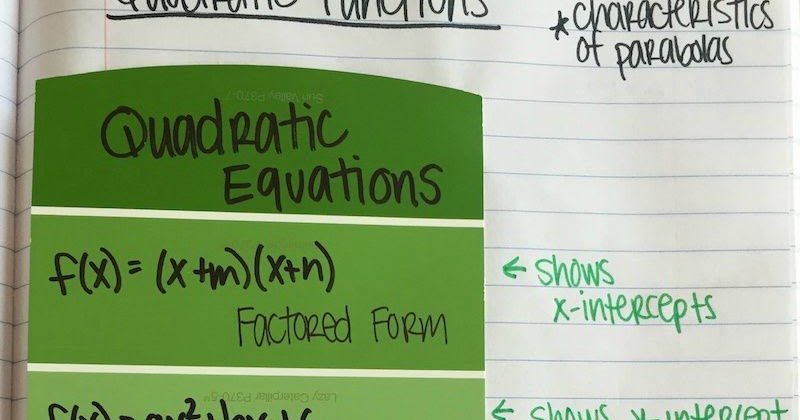 Quadratic Functions
*characteristics
of parabolas
Sun Valley P370-7
Quadratic
Equations
f(x) = (x+m)(x+n)
Factored Form
← shows
x-intercepts
Lazy Caterpillar P370-5
f(x) = ax²+bx+c
← shows y-intercept